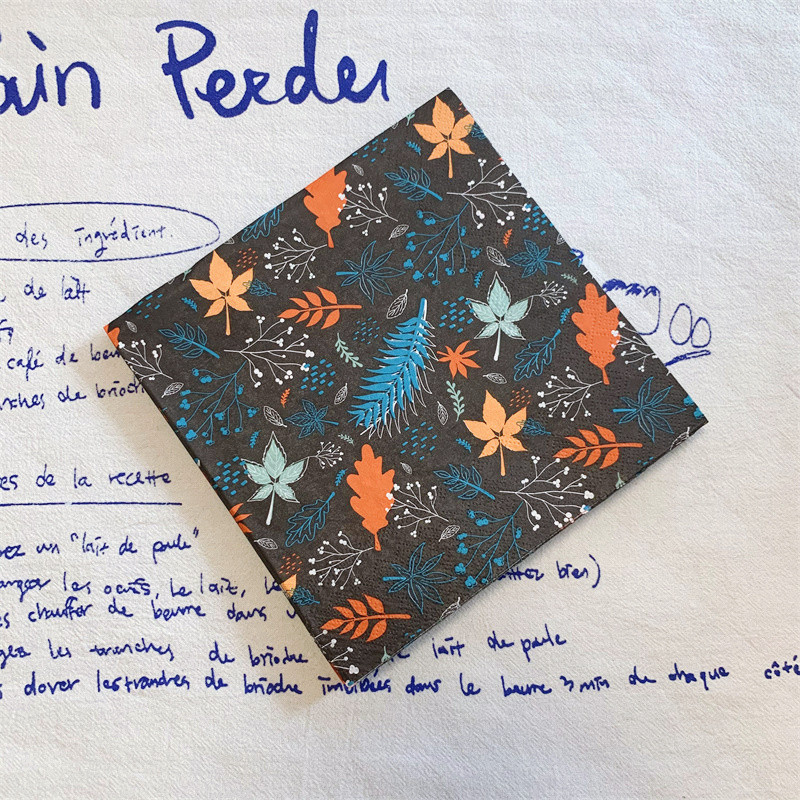 ain Perdu
des ingrédient.
, de lait
café de beu
nches de brioch
es de la recette
ez un "lait de poule"
angez les oeufs, le lait, le
ttez bien)
s chauffer de beurre dans u
gez les tranches de brioche le lait de poule
s dorer les tranches de brioche imbibées dans le beurre 3 min de chaque côté